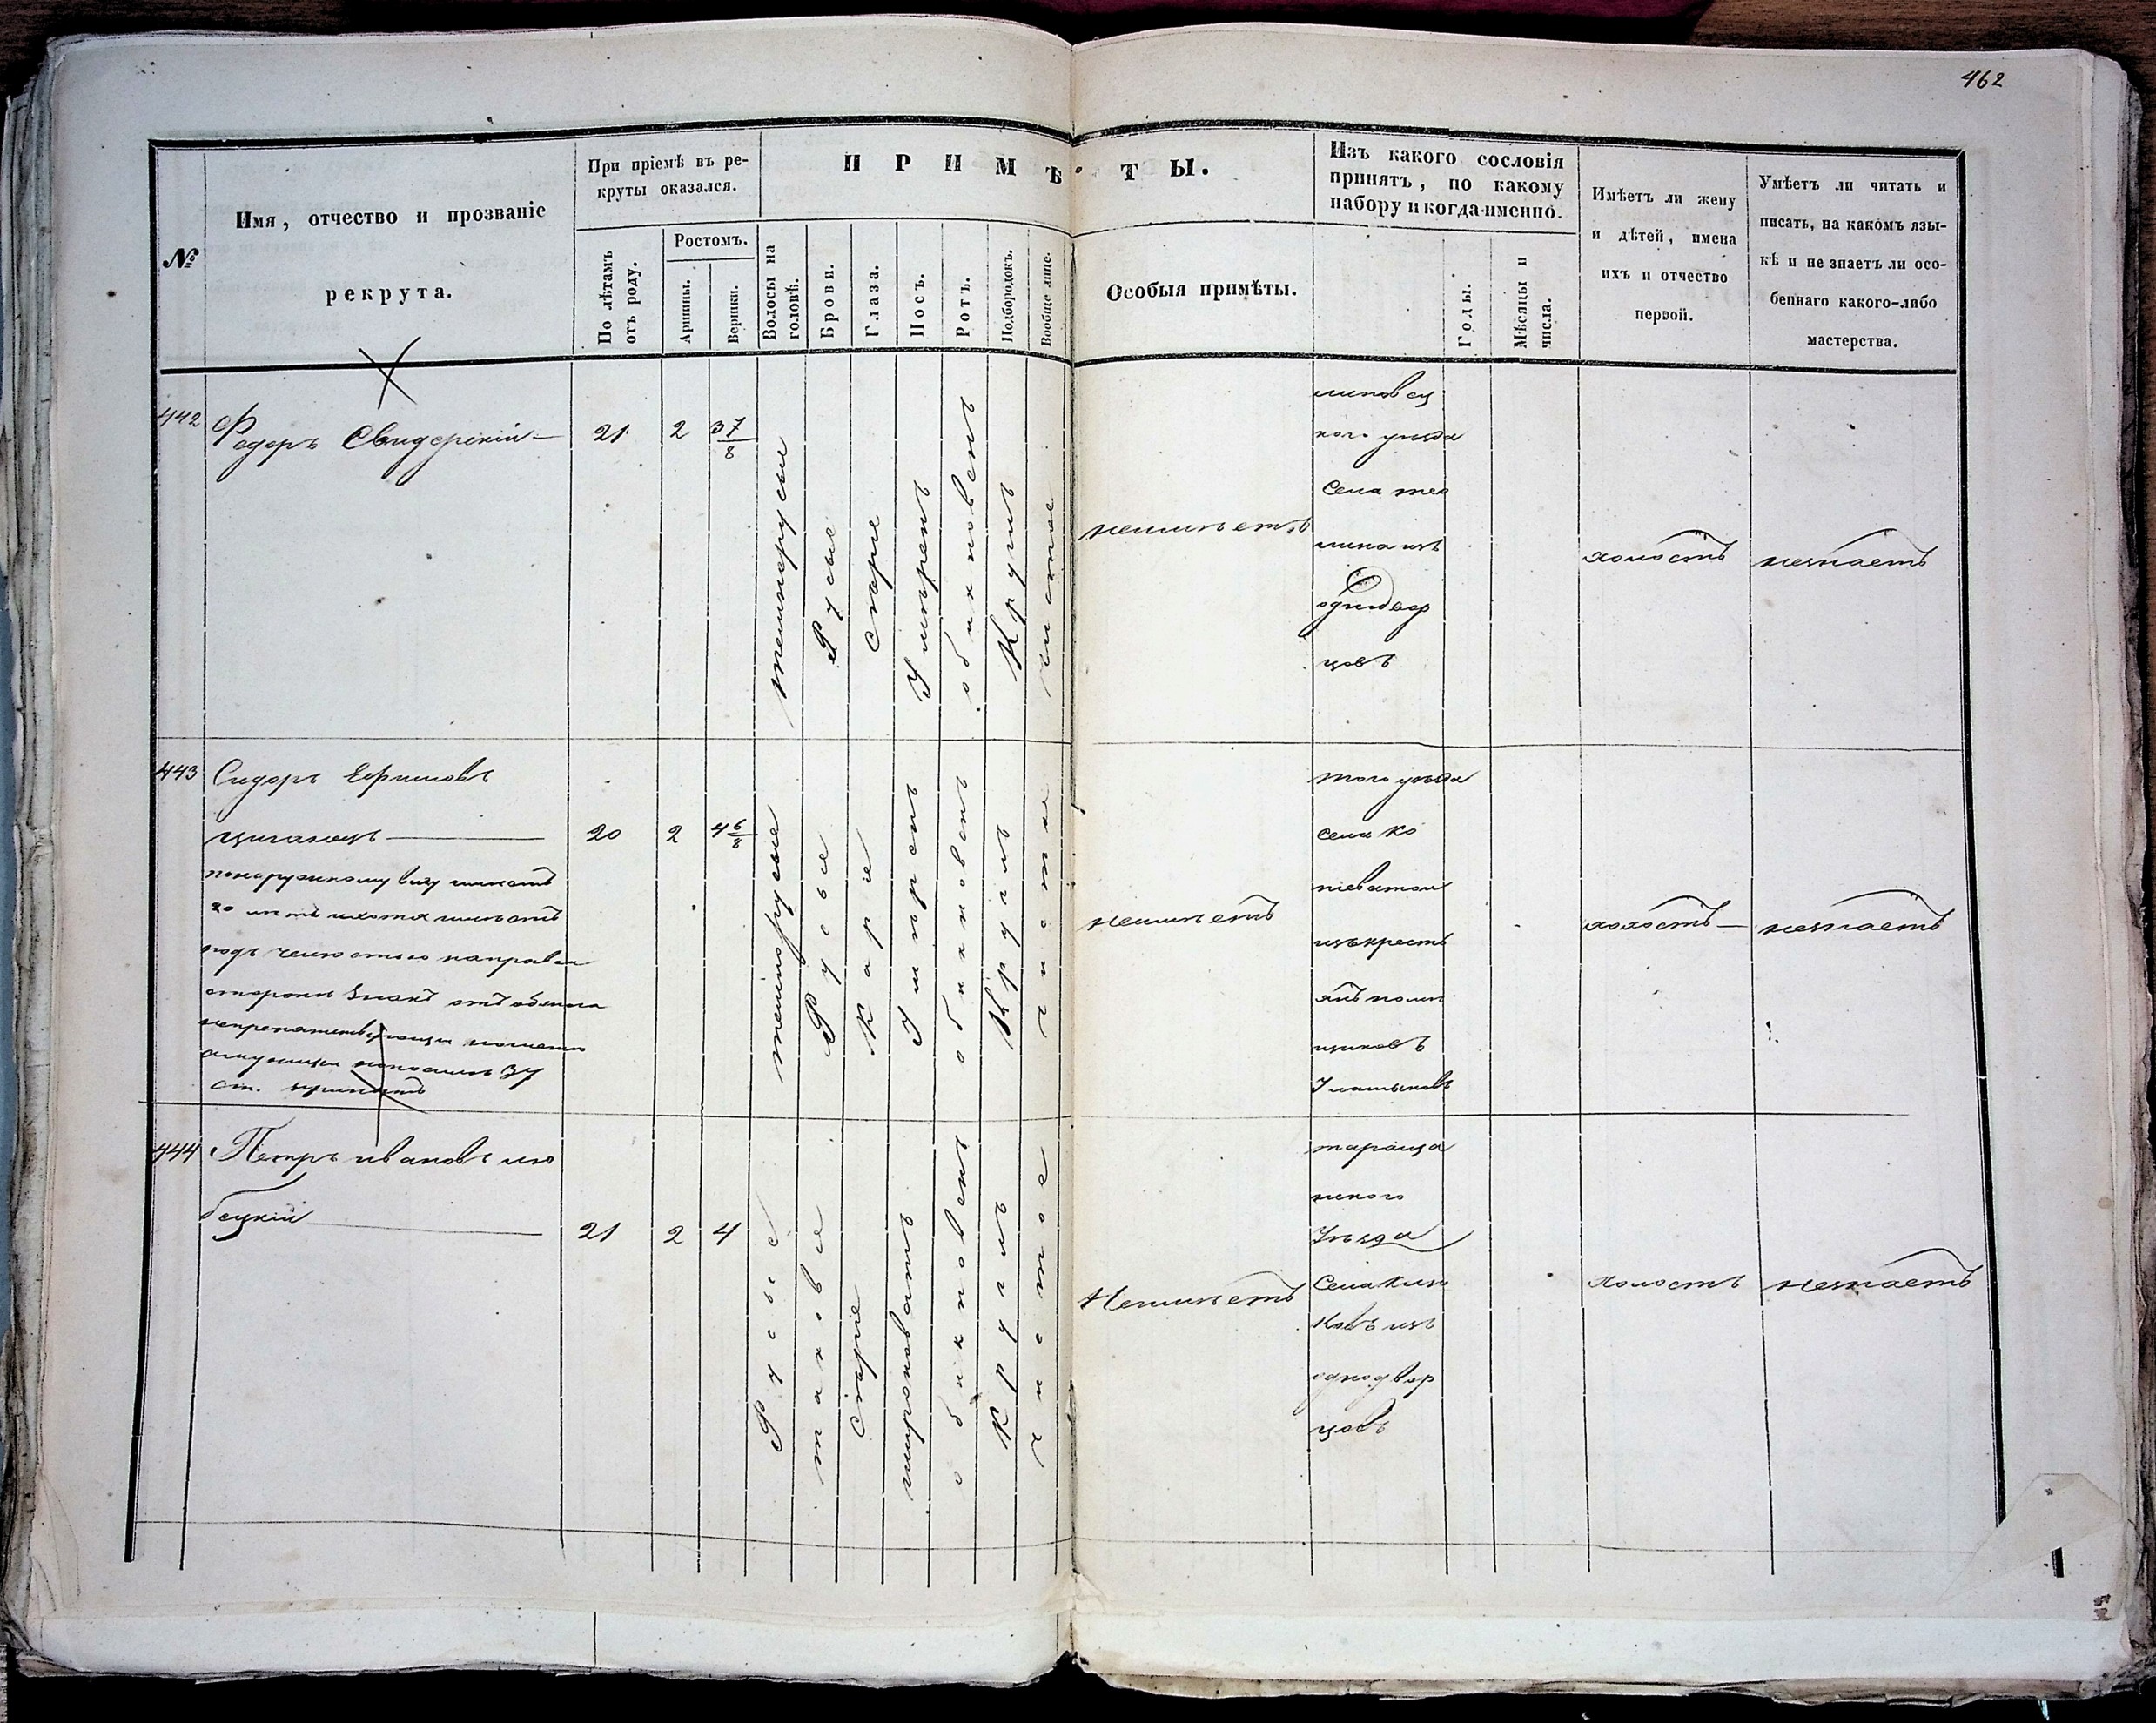 462
№
Имя, отчество и прозваніе
рекрута.
При пріемѣ въ ре-
круты оказался.
По лѣтамъ
отъ роду.
Ростомъ.
Аршины.
Вершки.
ПРИМѢТЫ.
Волосы на
головѣ.
Брови.
Глаза.
Носъ.
Ротъ.
Подбородокъ.
Вообще лице.
Особыя примѣты.
Изъ какого сословія
принятъ, по какому
набору и когда именно.
Годы.
Мѣсяцы и
числа.
Имѣетъ ли жену
и дѣтей, имена
ихъ и отчество
первой.
Умѣетъ ли читать и
писать, на какомъ язы-
кѣ и не знаетъ ли осо-
беннаго какого-либо
мастерства.
442
Федоръ Свидерскій
21
2
3 7/8
темнорусые
Русые
Сѣрые
Умѣренъ
обикновенъ
Круглъ
чистое
неимѣетъ
липовец
кого уѣзда
Села
изъ
однодвор
цовъ
холостъ
незнаетъ
443
Сидоръ Ефимовъ
циганецъ
20
2
4 6/8
темнорусые
Русые
Каріе
Умѣренъ
обикновенъ
Круглъ
чистое
неимѣетъ
того уѣзда
села Ко
изъ крестъ
янъ помѣ
щиковъ
холостъ
незнаетъ
444
Петръ Ивановъ лю
бецкій
21
2
4
Русые
таковые
Сѣрые
широковатъ
обикновенъ
Круглъ
чистое
Неимѣетъ
тараща
нского
Уѣзда
Села
изъ
однодвор
цовъ
холостъ
незнаетъ